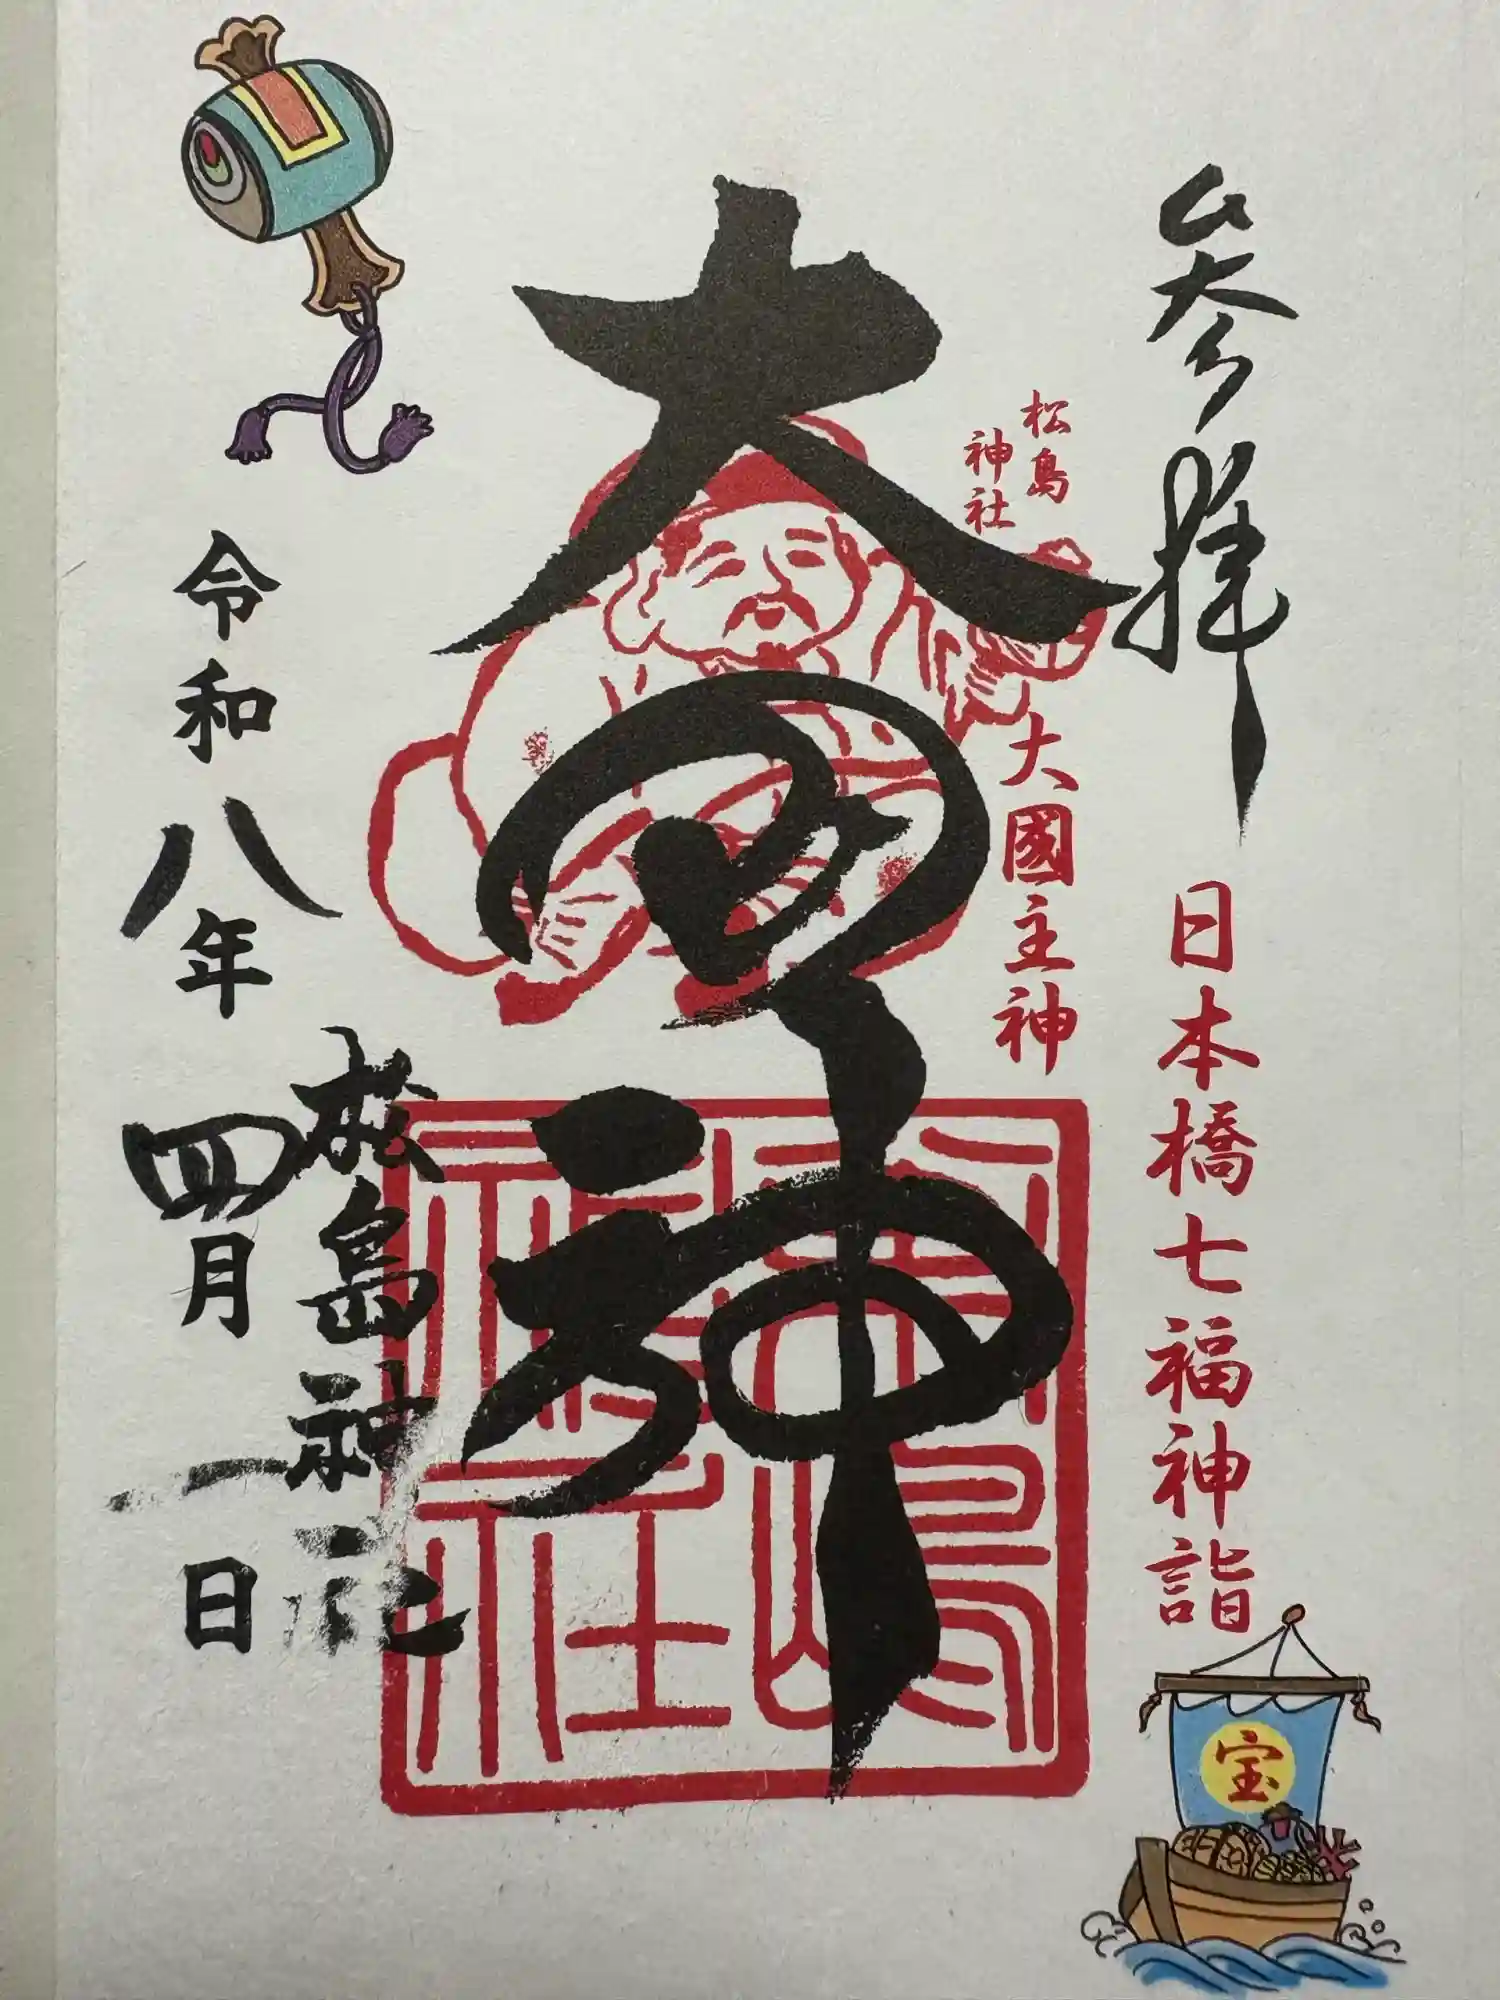 参拝
日本橋七福神詣
宝
松島
神社
大國主神
大国神
松島神社
令和八年四月一日